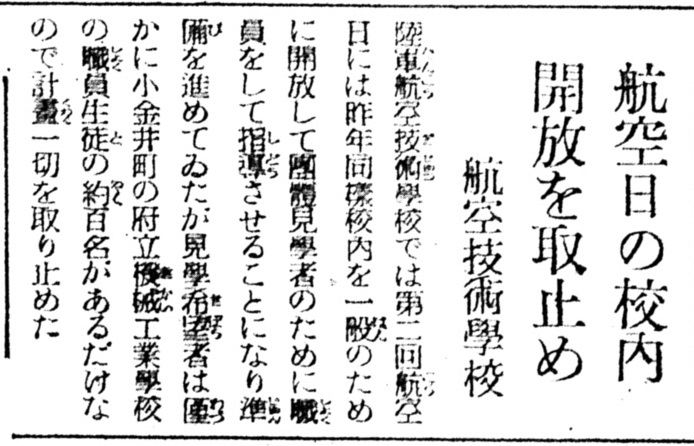 航空日の校内
開放を取止め
航空技術學校
陸軍航空技術學校では第二回航空
日には昨年同樣校内を一般のため
に開放して團體見學者のために職
員をして指導させることになり準
備を進めてゐたが見學希望者は僅
かに小金井町の府立機械工業學校
の職員生徒の約百名があるだけな
ので計畫一切を取り止めた